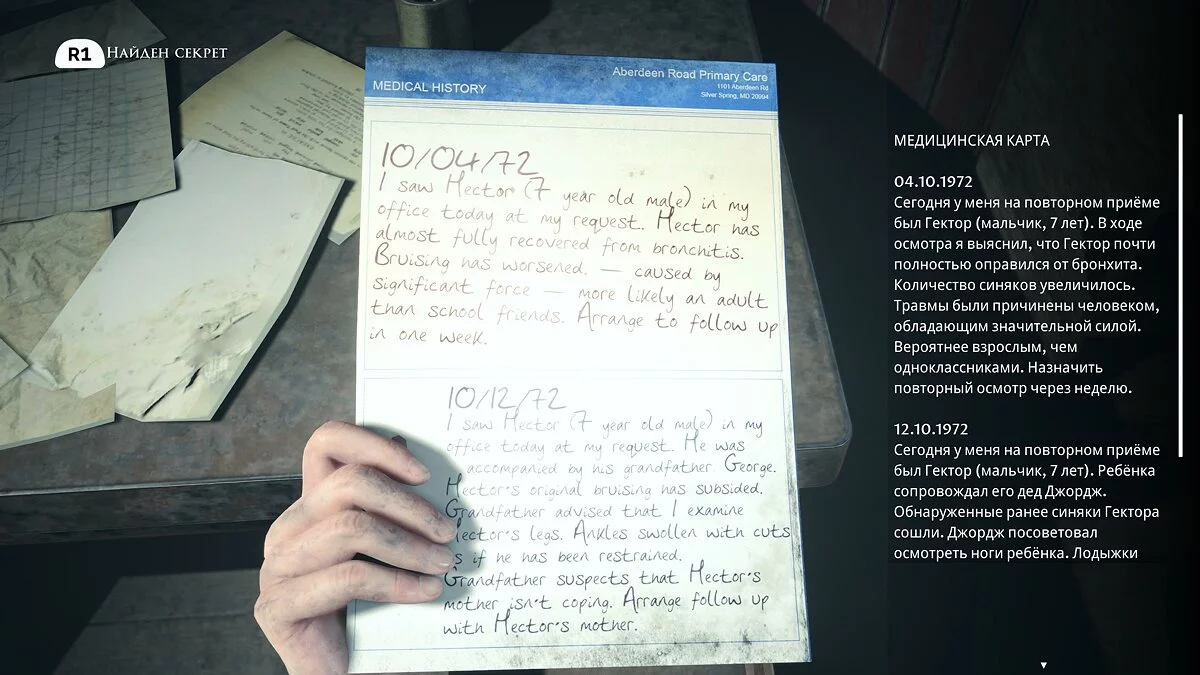 R1 НАЙДЕН СЕКРЕТ
MEDICAL HISTORY
Aberdeen Road Primary Care
1101 Aberdeen Rd
Silver Spring, MD 20994
10/04/72
I saw Hector (7 year old male) in my
office today at my request. Hector has
almost fully recovered from bronchitis.
Bruising has worsened. — caused by
significant force — more likely an adult
than school friends. Arrange to follow up
in one week.
10/12/72
I saw Hector (7 year old male) in my
office today at my request. He was
accompanied by his grandfather George.
Hector's original bruising has subsided.
Grandfather advised that I examine
Hector's legs. Ankles swollen with cuts
s if he has been restrained.
Grandfather suspects that Hector's
mother isn't coping. Arrange follow up
with Hector's mother.
МЕДИЦИНСКАЯ КАРТА
04.10.1972
Сегодня у меня на повторном приёме
был Гектор (мальчик, 7 лет). В ходе
осмотра я выяснил, что Гектор почти
полностью оправился от бронхита.
Количество синяков увеличилось.
Травмы были причинены человеком,
обладающим значительной силой.
Вероятнее взрослым, чем
одноклассниками. Назначить
повторный осмотр через неделю.
12.10.1972
Сегодня у меня на повторном приёме
был Гектор (мальчик, 7 лет). Ребёнка
сопровождал его дед Джордж.
Обнаруженные ранее синяки Гектора
сошли. Джордж посоветовал
осмотреть ноги ребёнка. Лодыжки